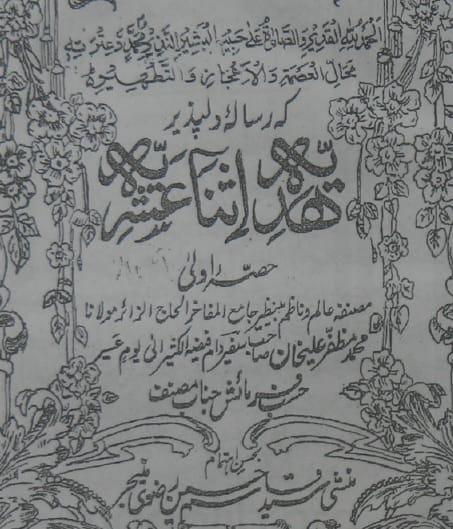 الحمد للہ القدیر والصلوۃ علی حبیبہ البشیر النذیر محمد وعترتہ
محال العصمۃ والاعجاز والتطہیر
کہ رسالۂ دلپذیر
ھدیہ اثنا عشریہ
حصہ اولی
مصنفہ عالم و ناظم بینظیر جامع المفاخر الحاج الزائر مولانا
محمد مظفر علیخان صاحب سفیر دام فیضہ الکثیر الی یوم عسیر
حسب فرمائش جناب مصنف
بحسن اہتمام
منشی سید قاسم حسین رضوی منیجر